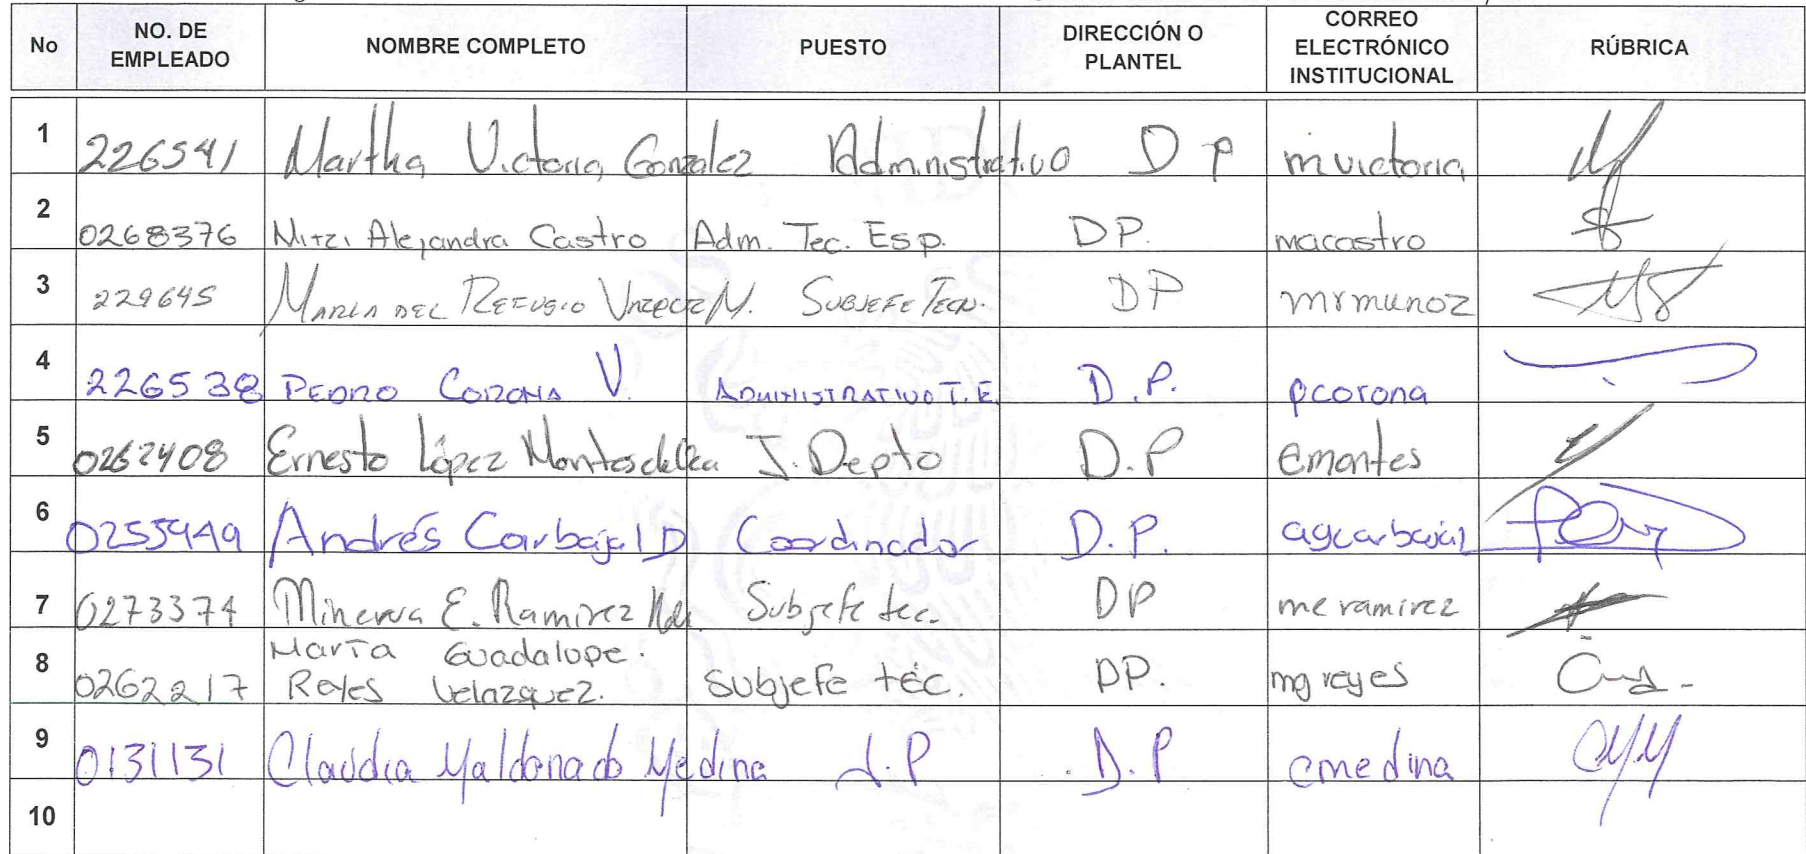 No NO. DE EMPLEADO NOMBRE COMPLETO PUESTO DIRECCIÓN O PLANTEL CORREO ELECTRÓNICO INSTITUCIONAL RÚBRICA
1 226541 Martha Victoria Gonzalez Administrativo D P mvictoria
2 0268376 Mitzi Alejandra Castro Adm. Tec. Esp. DP. macastro
3 229645 MARIA DEL REFUGIO VAZQUEZ M. SUBJEFE TECN. DP mrmunoz
4 226538 PEDRO CORONA V. ADMINISTRATIVO T.E. D.P. pcorona
5 0262408 Ernesto López Montesdeoca J. Depto D.P emontes
6 0255949 Andrés Carbajal D Coordinador D.P. agcarbajal
7 0273374 Minerva E. Ramirez Subjefe tec. DP meramirez
8 0262217 María Guadalupe. Reyes Velazquez. subjefe téc. DP. mgreyes
9 0131131 Claudia Maldonado Medina J.P D.P cmedina
10